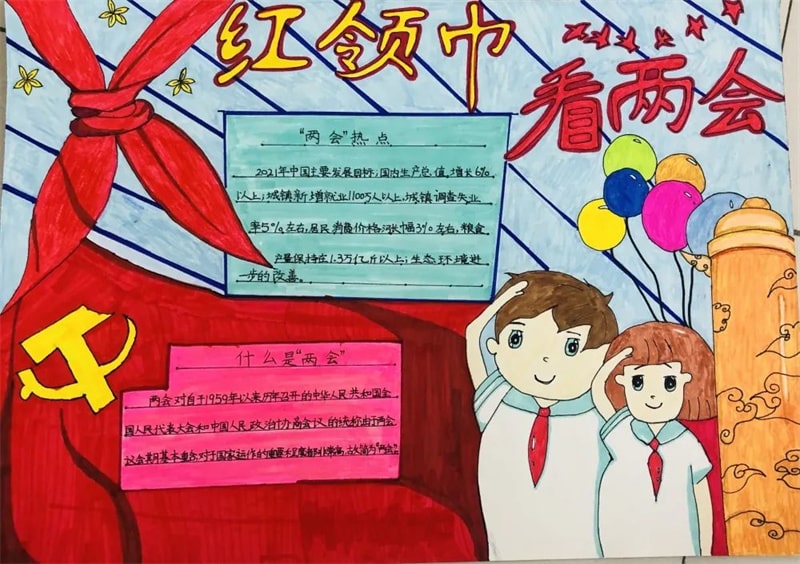 红领巾
看两会
“两会”热点
2021年中国主要发展目标,国内生产总值,增长6%
以上;城镇新增就业1100万人以上,城镇调查失业
率5%左右,居民消费价格涨幅3%左右,粮食
产量保持在1.3万亿斤以上;生态环境进
一步的改善。
什么是“两会”
两会对自于1959年以来历年召开的中华人民共和国全
国人民代表大会和中国人民政治协商会议的统称由于两会
议会期基本重合对于国家运作的重要程度都非常高,故简为“两会”